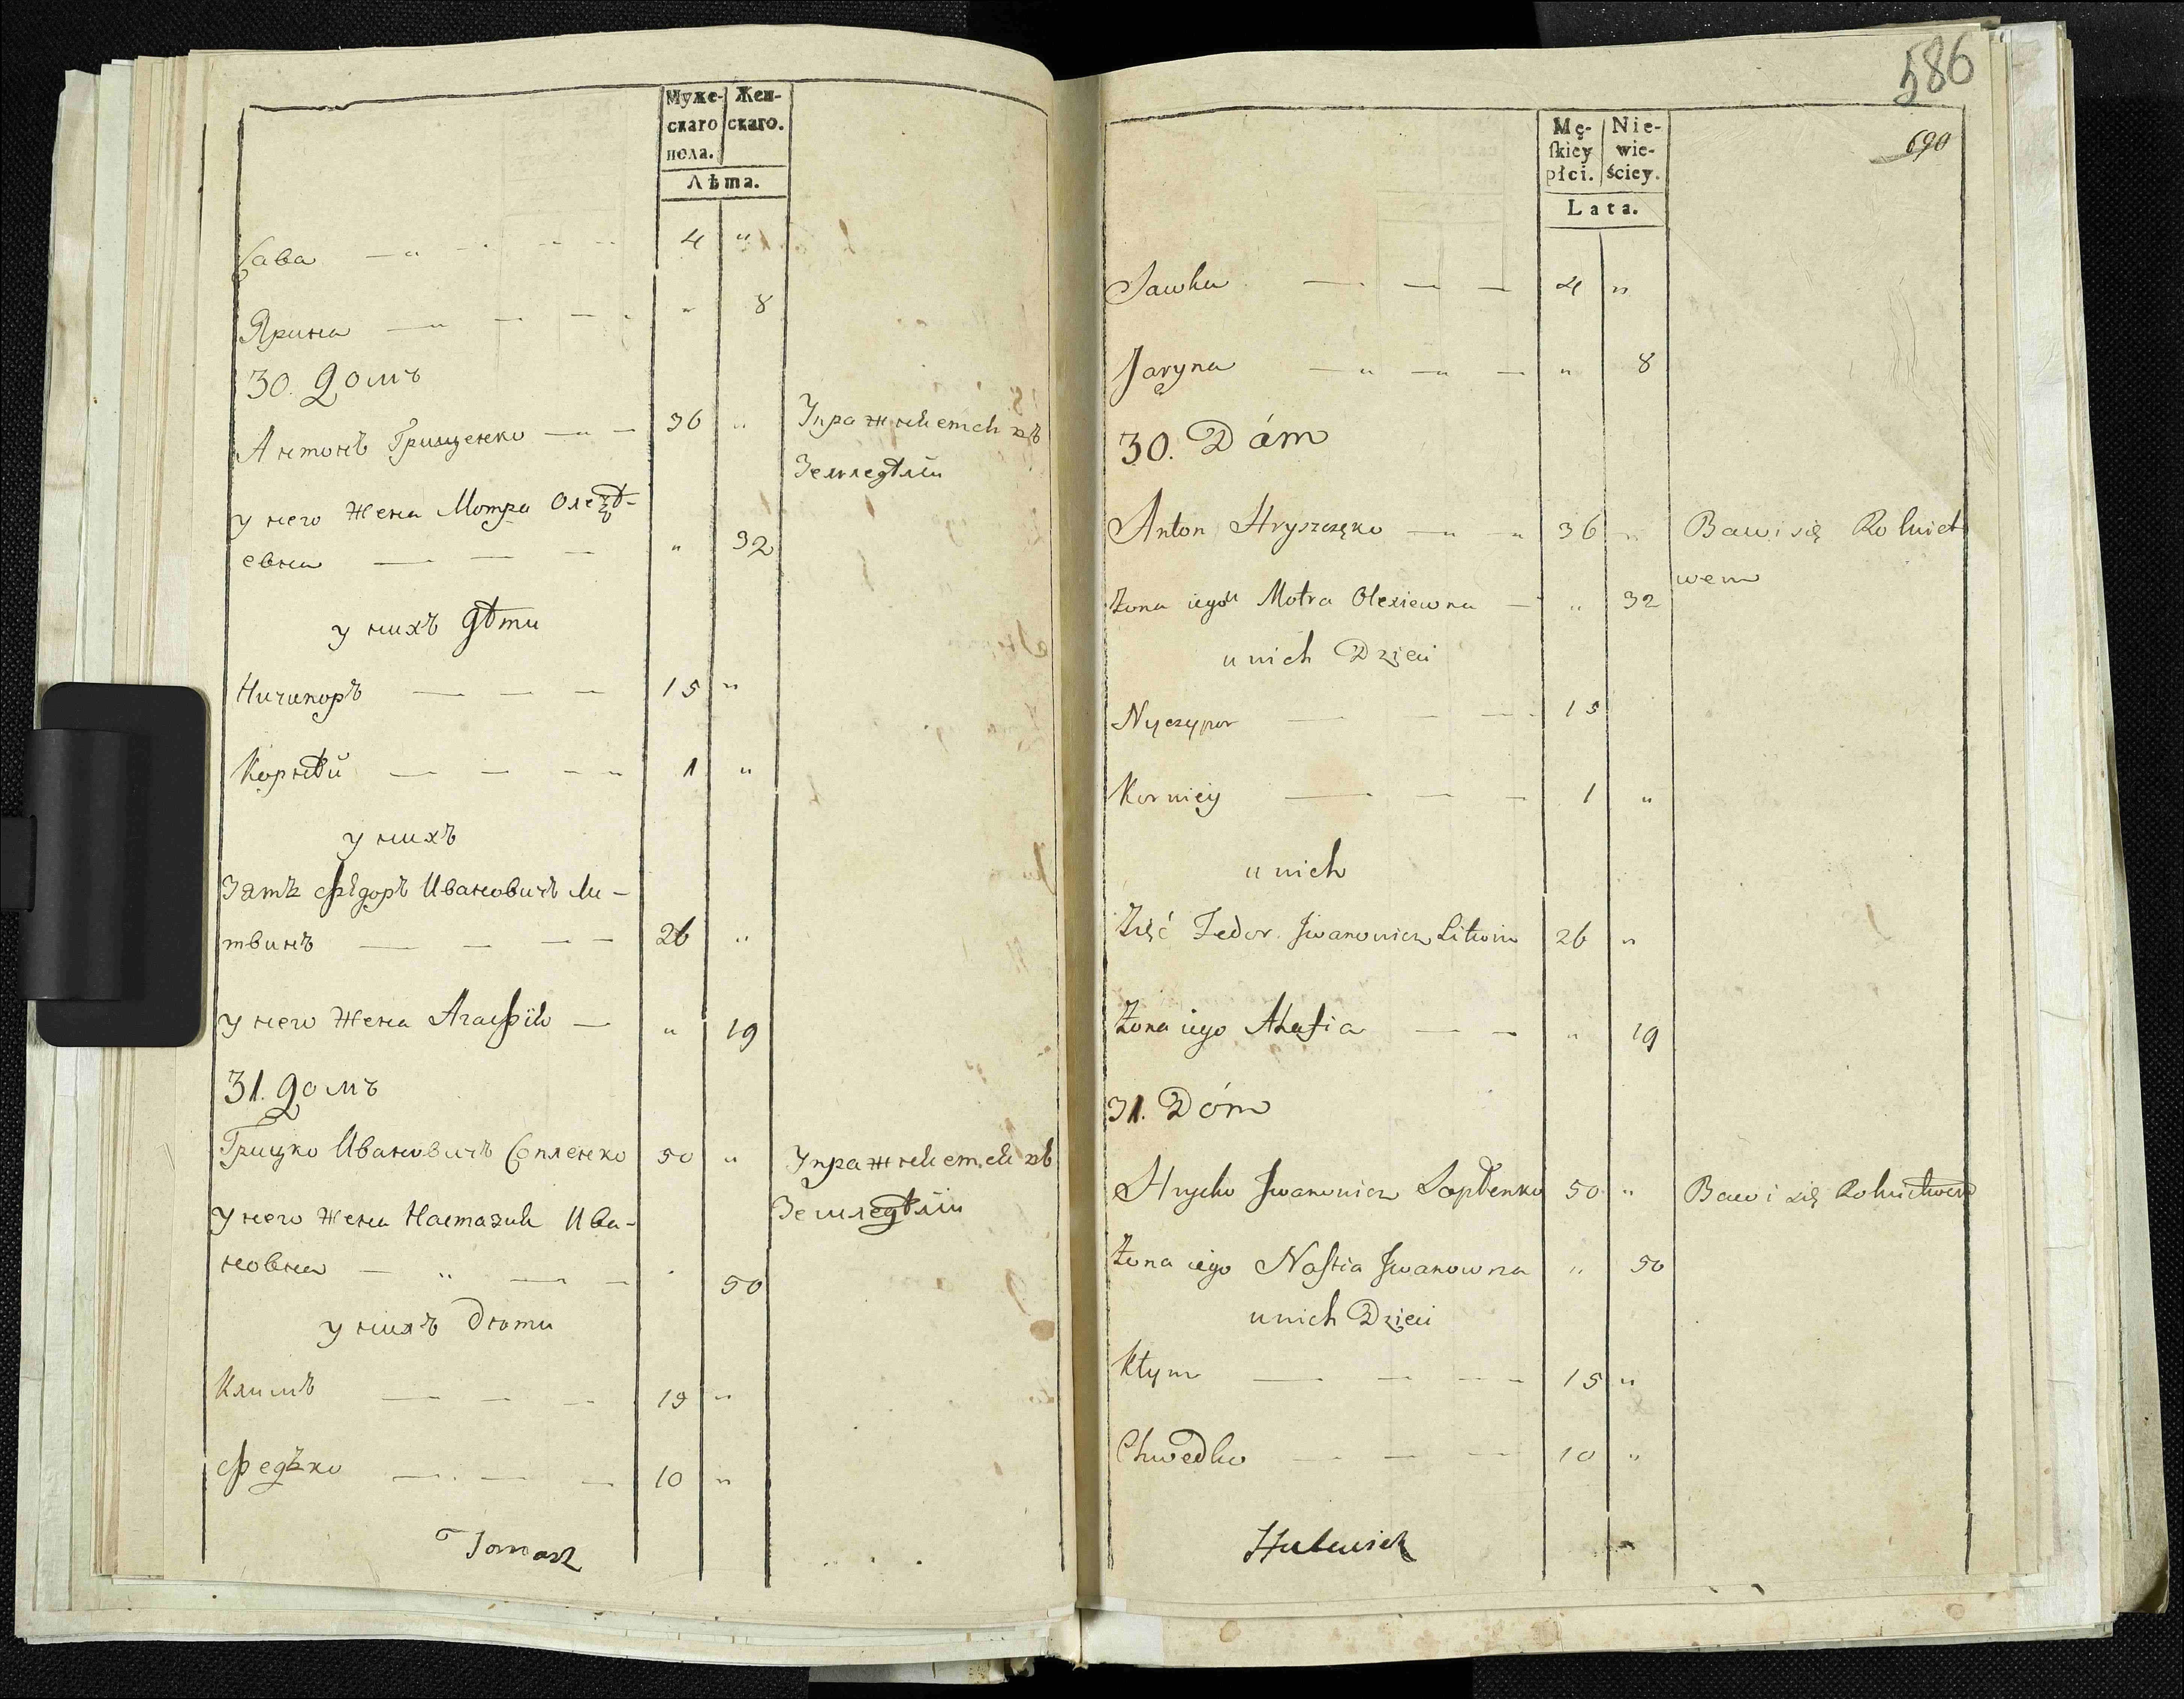 Муже-
скаго
пола.
Жен-
скаго.
Лѣта.
Сава 4 "
Ярина " 8
30. Домъ
Антонъ Грищенко 36 " Упражняется въ
Земледѣлїи
у него жена Мотра Олексѣ-
евна " 32
у нихъ дѣти
Ничипоръ 15 "
Корнѣй 1 "
у нихъ
Зять Фѣдоръ Ивановичъ Ли-
твинъ 26 "
у него жена Агафїя " 19
31. Домъ
Грицко Ивановичъ Сопленко 50 " Упражняется въ
Земледѣлїи
у него жена Настазия Ива-
новна " 50
у нихъ дѣти
Климъ 19 "
Федько 10 "
Tomasz
586
690
Mę-
skiey
płci.
Nie-
wie-
ściey.
Lata.
Sawka 4 "
Jaryna " 8
30. Dóm
Anton Hryszczęko 36 " Bawi się Rolnict
wem
Żona iego Motra Olexiewna " 32
u nich Dzieci
Nyczypor 15
Korniey 1 "
u nich
Zięć Fedor Jwanowicz Litwin 26 "
Żona iego Ahafia " 19
31. Dóm
Hrycko Jwanowicz Soplenko 50 " Bawi się Rolnictwem
Żona iego Nastia Jwanowna " 50
u nich Dzieci
Kłym 15 "
Chwedko 10 "
Hulewicz